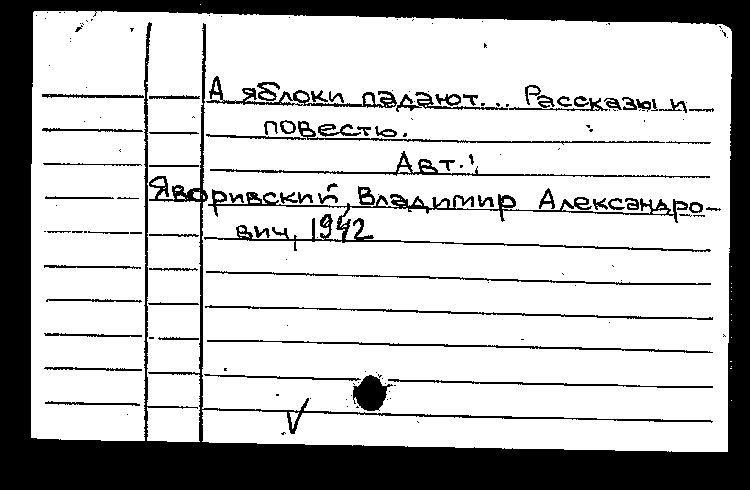 А яблоки падают... Рассказы и
повесть.
Авт.:
Яворивский, Владимир Александро-
вич, 1942